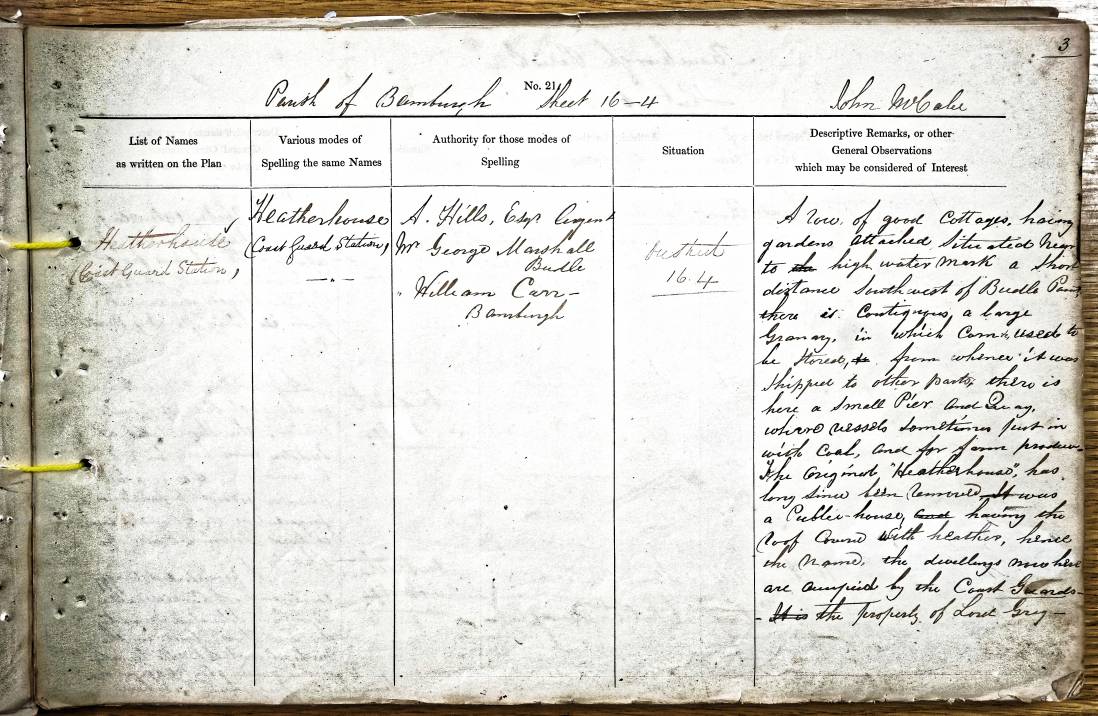 3
No. 21
Parish of Bamburgh Sheet 16-4 John McCabe
List of Names
as written on the Plan
Various modes of
Spelling the same Names
Authority for those modes of
Spelling
Situation
Descriptive Remarks, or other
General Observations
which may be considered of Interest
Heatherhouse
(Coast Guard Station)
Heatherhouse
(Coast Guard Station)
A. Hills, Esqr
Mr George Marshall
Budle
" William Carr -
Bamburgh
16.4
A row of good Cottages, having
gardens attached, Situated Near
to the high water mark a short
distance Southwest of Budle Point
there is Contiguous, a large
Granary, in which Corn used to
be Stored, from whence it was
Shipped to other parts, there is
here a Small Pier and Quay,
where vessels sometimes put in
with Coal, and for farm produce
The original "Heatherhouse", has
long since been removed It was
a Public-house, and having the
roof Covered with heather, hence
the Name, the dwellings now here
are occupied by the Coast Guards -
- It is the property of Lord Grey -